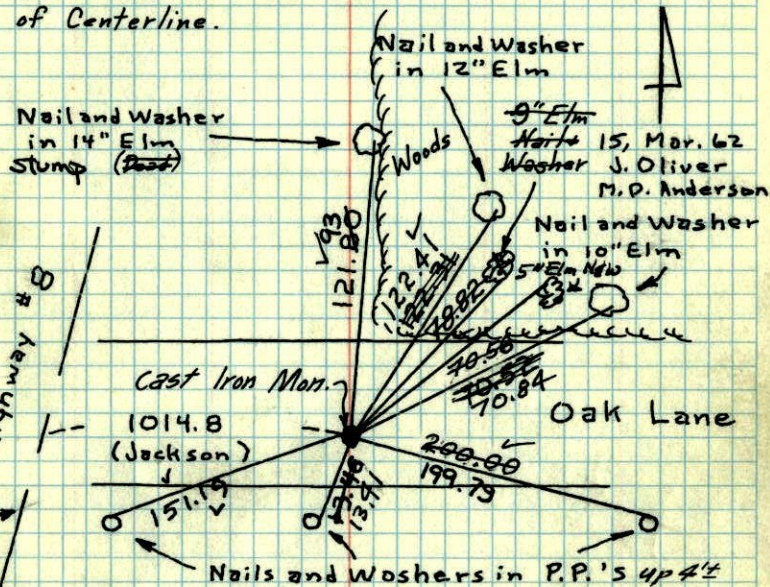 of Centerline.
Nail and Washer
in 12" Elm
Nail and Washer
in 14" Elm
Stump (Dead)
Woods
9" Elm
Nail &
Washer
15, Mar. 62
J. Oliver
M.D. Anderson
Nail and Washer
in 10" Elm
5" Elm N&W
✓93
121.80
✓
122.41
78.82
70.58
70.52
70.84
Highway #8
Cast Iron Mon.
1014.8
(Jackson)
Oak Lane
200.00 ✓
199.79
151.19 ✓
13.46
13.41
Nails and Washers in P.P.'s up 4'±